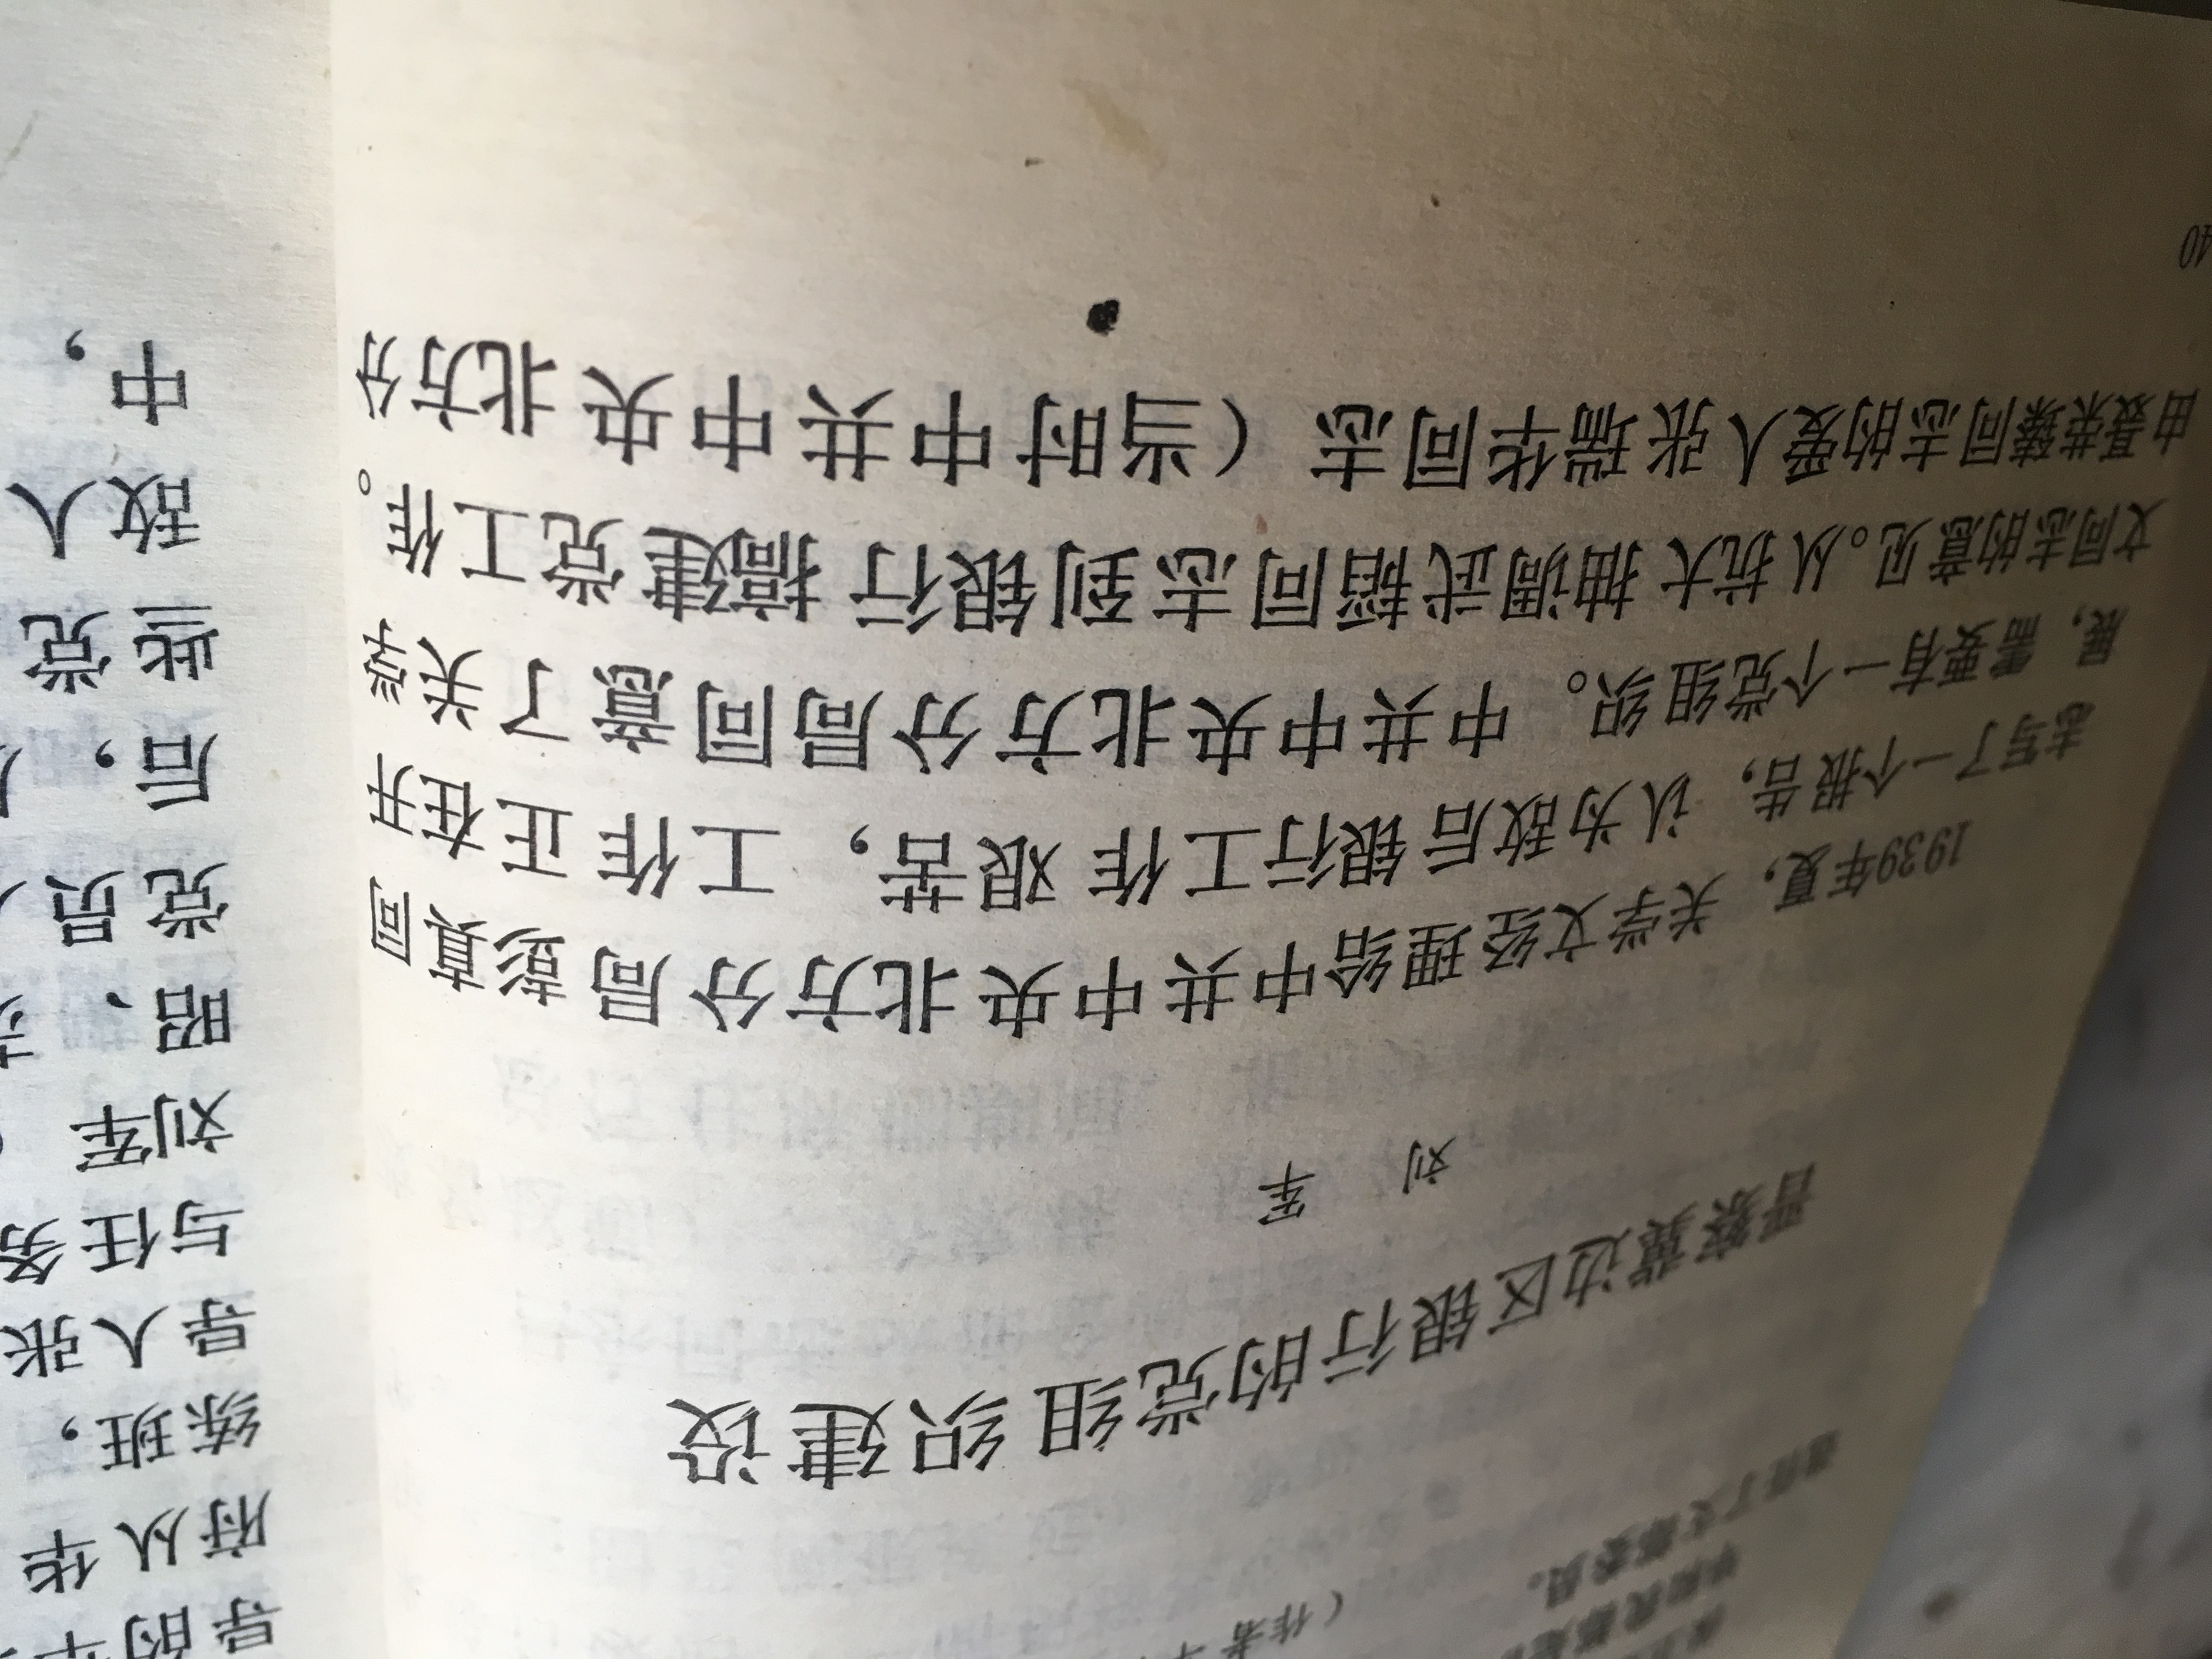 (作者
晋察冀边区银行的党组织建设
刘 军
1939年夏，关学文经理给中共中央北方分局彭真同
志写了一个报告，认为敌后银行工作艰苦，工作正在开
展，需要有一个党组织。中共中央北方分局同意了关学
文同志的意见。从抗大抽调武韬同志到银行搞建党工作。
由聂荣臻同志的爱人张瑞华同志（当时中共中央北方分
40
导的
府从华
练班，
导人张
与任务
刘军
昭、
党员
后，
些党
敌人
中，